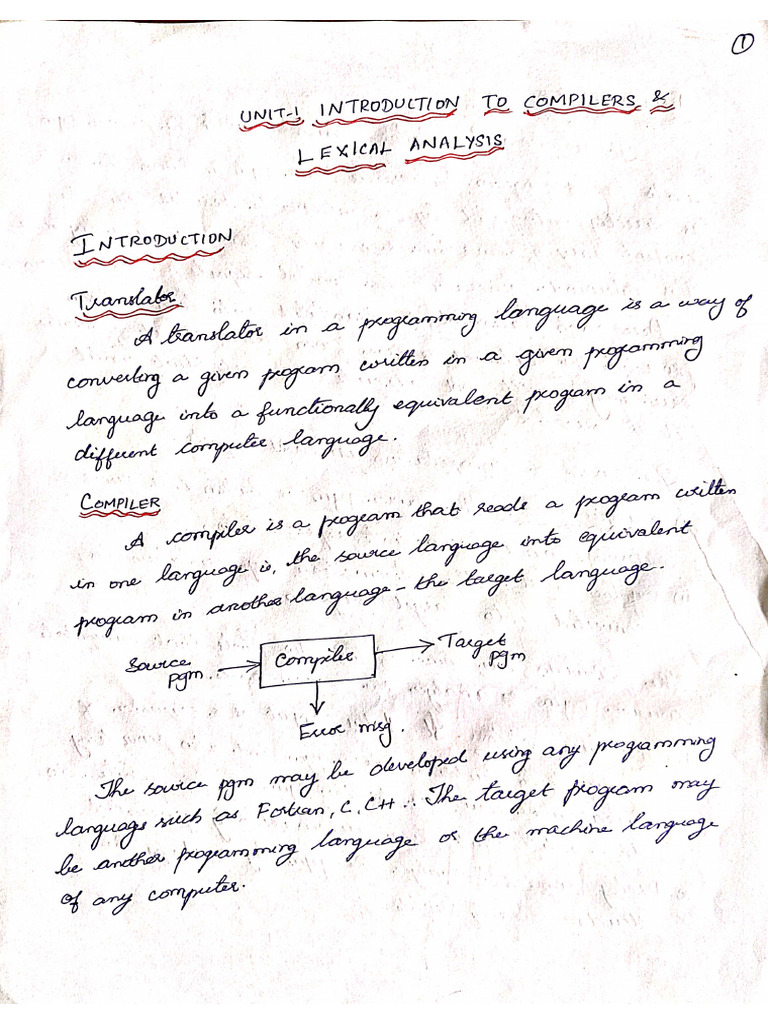 ①
UNIT-1 INTRODUCTION TO COMPILERS &
LEXICAL ANALYSIS
INTRODUCTION
Translator
A translator in a programming language is a way of
converting a given program written in a given programming
language into a functionally equivalent program in a
different computer language.
COMPILER
A compiler is a program that reads a program written
in one language ie, the source language into equivalent
program in another language - the target language.
Source pgm → Compiler → Target pgm
Error msg.
The source pgm may be developed using any programming
language such as Fortran, C, C++. The target program may
be another programming language or the machine language
of any computer.